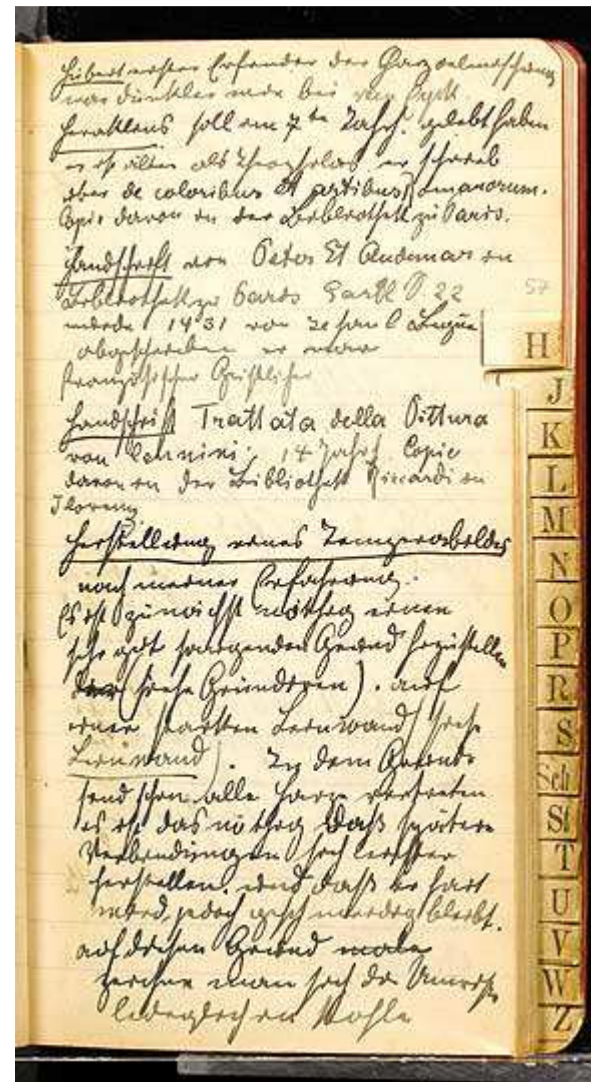 Hubert erster Erfinder der Harzoelmischung
war dunkler wie bei van Eyck.
Heraklius soll im 7ten Jahrh. gelebt haben
er ist älter als Theophilas er schrieb
über de coloribus et artibus Romanorum.
Copie davon in der Bibliothek zu Paris.
Handschrift von Peter St Audemar in
Bibliothek zu Paris
57
wurde 1431 von Jehan le Begue
abgeschrieben er war
französischer Geistlicher
Handschrift Trattata della Pittura
von Cennini. 14 Jahrh Copie
davon in der Bibliothek Riccardi in
Florenz
Herstellung eines Temperabildes
nach meiner Erfahrung.
Es ist zunächst nöthig einen
sehr gut saugenden Grund herzustellen
(siehe Grundiren). auf
einer starken Leinwand (siehe
Leinwand). In dem Grunde
sind schon alle Harze vertreten
es ist das nöthig daß spätere
Verbindungen sich leichter
herstellen. und daß er hart
wird, jedoch geschmeidig bleibt.
auf diesen Grund male
zeichne man sich die Umrisse
lediglich in Kohle
H
J
K
L
M
N
O
P
R
S
Sch
St
T
U
V
W
Z